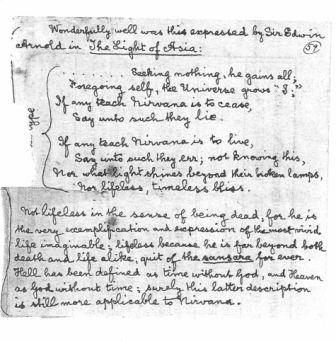 Wonderfully well was this expressed by Sir Edwin
Arnold in The Light of Asia:
51
. . . . . . . . Seeking nothing, he gains all;
Foregoing self, the Universe grows "I";
If any teach Nirvana is to cease,
Say unto such they lie.
If any teach Nirvana is to live,
Say unto such they err; not knowing this,
Nor what light shines beyond their broken lamps,
Nor lifeless, timeless bliss.
type
Not lifeless in the sense of being dead, for he is
the very exemplification and expression of the most vivid
life imaginable; lifeless because he is far beyond both
death and life alike, quit of the sansara for ever.
Hell has been defined as time without God, and Heaven
as God without time; surely this latter description
is still more applicable to Nirvana.